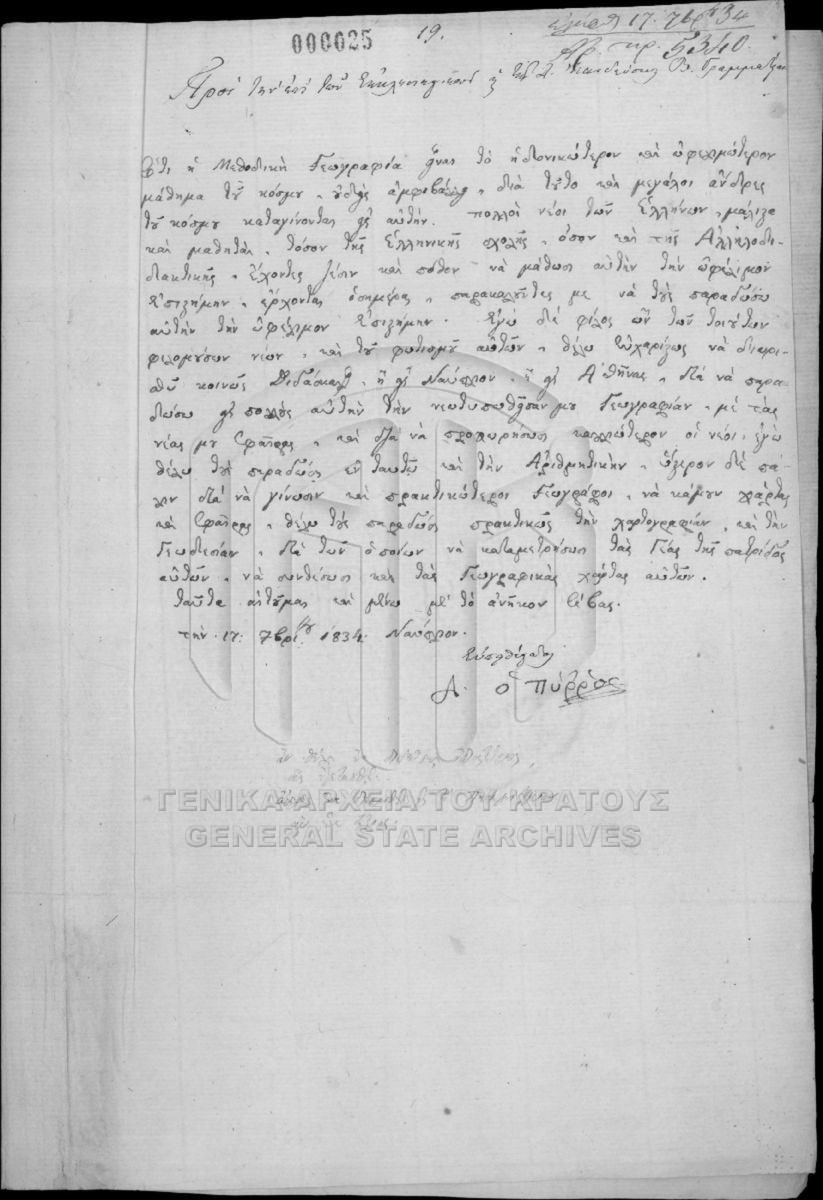 000025
19.
ἐλήφθη 17. 7βρίου 34
Ἀρ. πρ. 5340.
Πρὸς τὴν ἐπὶ τῶν Ἐκκλησιαστικῶν Β. Γραμματείαν
Ὅτι ἡ Μεθοδικὴ Γεωγραφία ἦναι τὸ ἡδονικώτερον καὶ ὠφελιμώτερον
μάθημα τοῦ κόσμου, οὐδεὶς ἀμφιβάλλει, διὰ τοῦτο καὶ μεγάλοι ἄνδρες
τοῦ κόσμου καταγίνονται εἰς αὐτήν. πολλοὶ νέοι τῶν Ἑλλήνων, μάλιστα
καὶ μαθηταὶ, τόσον τῆς Ἑλληνικῆς σχολῆς, ὅσον καὶ τῆς Ἀλληλοδι-
δακτικῆς, ἔχοντες ζέσιν καὶ πόθον νὰ μάθωσι αὐτὴν τὴν ὠφέλιμον
ἐπιστήμην, ἔρχονται ὁσημέραι, παρακαλοῦντές με νὰ τοὺς παραδώσω
αὐτὴν τὴν ὠφέλιμον ἐπιστήμην. Ἐγὼ δὲ φίλος ὢν τῶν τοιούτων
φιλομούσων νέων, καὶ τοῦ φωτισμοῦ αὐτῶν, θέλω εὐχαρίστως νὰ διορι-
σθῶ κοινῶς Διδάσκαλος, ἢ εἰς Ναύπλιον, ἢ εἰς Ἀθήνας, διὰ νὰ παρα-
δώσω εἰς πολλοὺς αὐτὴν τὴν νεοτυπωθεῖσάν μου Γεωγραφίαν, μὲ τὰς
νέας μου Σφαίρας, καὶ διὰ νὰ προχωρήσωσι καλλιώτερον οἱ νέοι, ἐγὼ
θέλω τοὺς παραδώσῃ ἐν ταυτῷ καὶ τὴν Ἀριθμητικὴν, ὕστερον δὲ πά-
λιν διὰ νὰ γίνωσιν καὶ πρακτικώτεροι Γεωγράφοι, νὰ κάμουν χάρτας
καὶ Σφαίρας, θέλω τοὺς παραδώσῃ πρακτικῶς τὴν χαρτογραφίαν, καὶ τὴν
Γεωδεσίαν, διὰ τῶν ὁποίων νὰ καταμετρήσωσι τὰς Γέας τῆς πατρίδος
αὐτῶν, νὰ συνθέσωσι καὶ τὰς Γεωγραφικὰς χάρτας αὐτῶν.
ταῦτα αἰτοῦμαι καὶ μένω μὲ τὸ ἀνῆκον σέβας.
τὴν 17: 7βρίου 1834. Ναύπλιον.
Εὐπειθέστατος
Δ. ὁ Πύῤῥος
ΓΕΝΙΚΑ ΑΡΧΕΙΑ ΤΟΥ ΚΡΑΤΟΥΣ
GENERAL STATE ARCHIVES